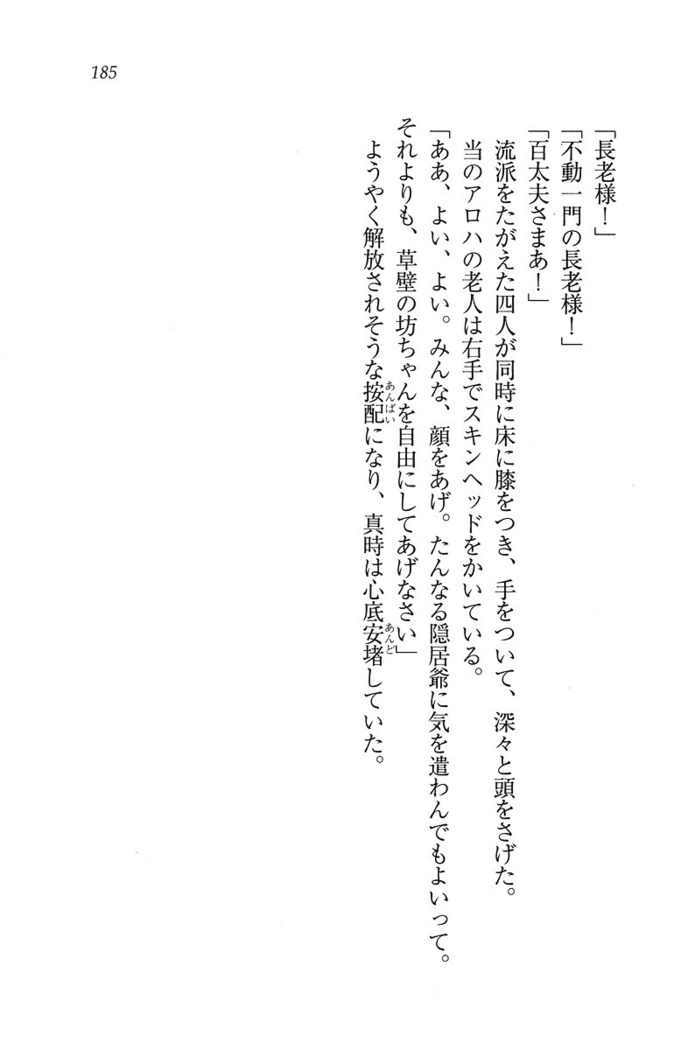 185
「長老様！」
「不動一門の長老様！」
「百太夫さまあ！」
流派をたがえた四人が同時に床に膝をつき、手をついて、深々と頭をさげた。
当のアロハの老人は右手でスキンヘッドをかいている。
「ああ、よい、よい。みんな、顔をあげ。たんなる隠居爺に気を遣わんでもよいって。
それよりも、草壁の坊ちゃんを自由にしてあげなさい」
ようやく解放されそうな按配あんばいになり、真時は心底安堵あんどしていた。